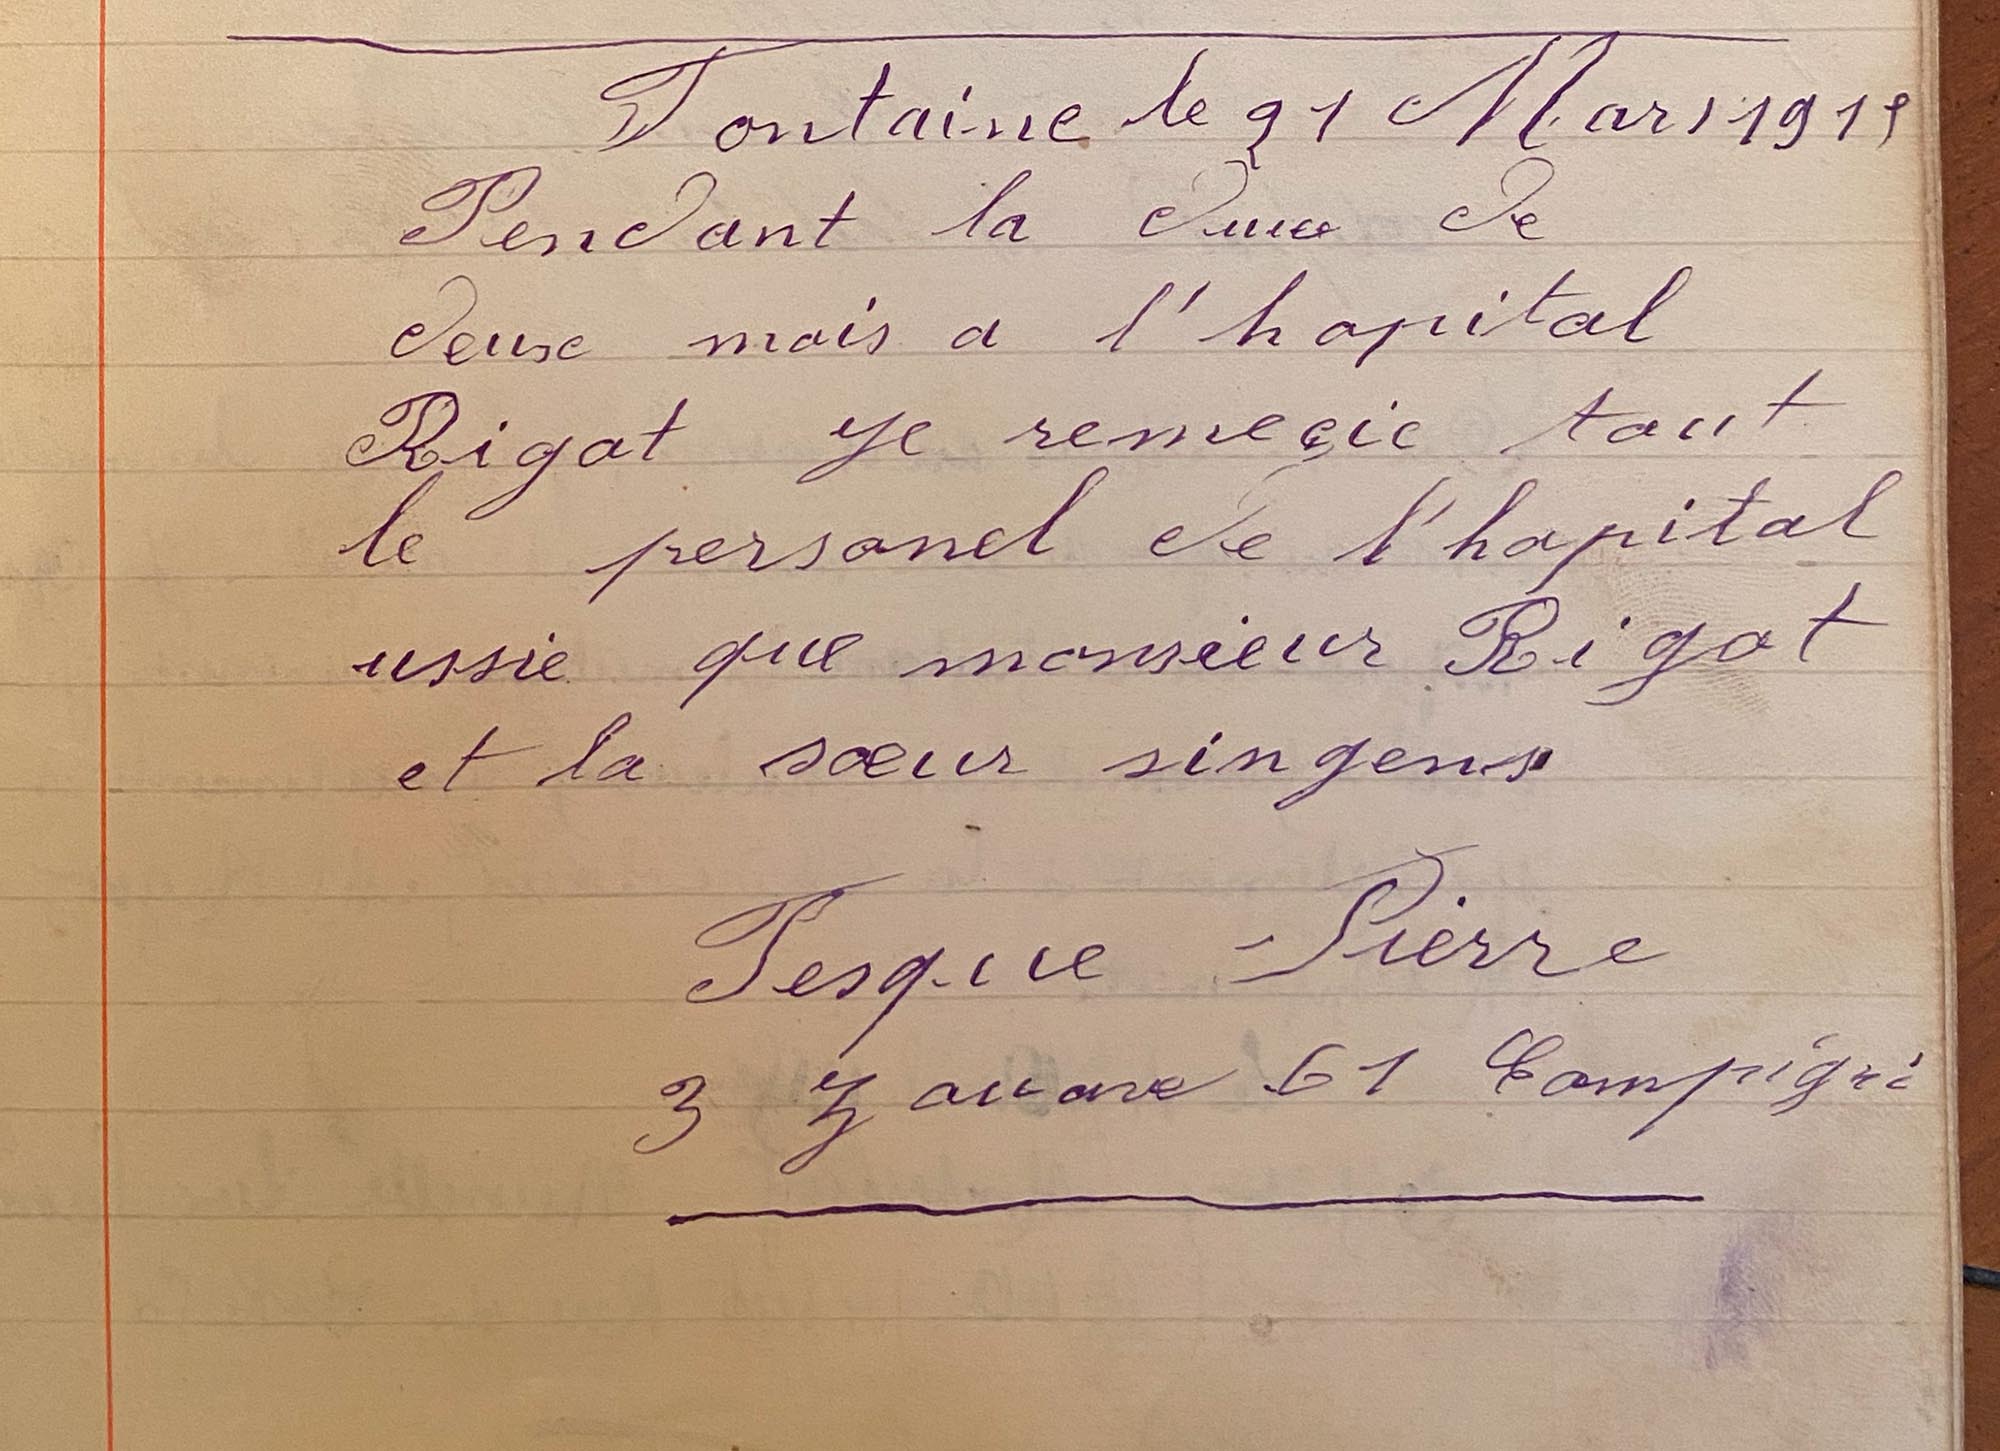 Fontaine le 21 Mars 1915
Pendant la duree de
deux mois a l'hopital
Rigot ye remeçie tout
le personel de l'hopital
ussie que monsieur Rigot
et la sœur singens
Tesque Pierre
3 Zouave 61 Compigni